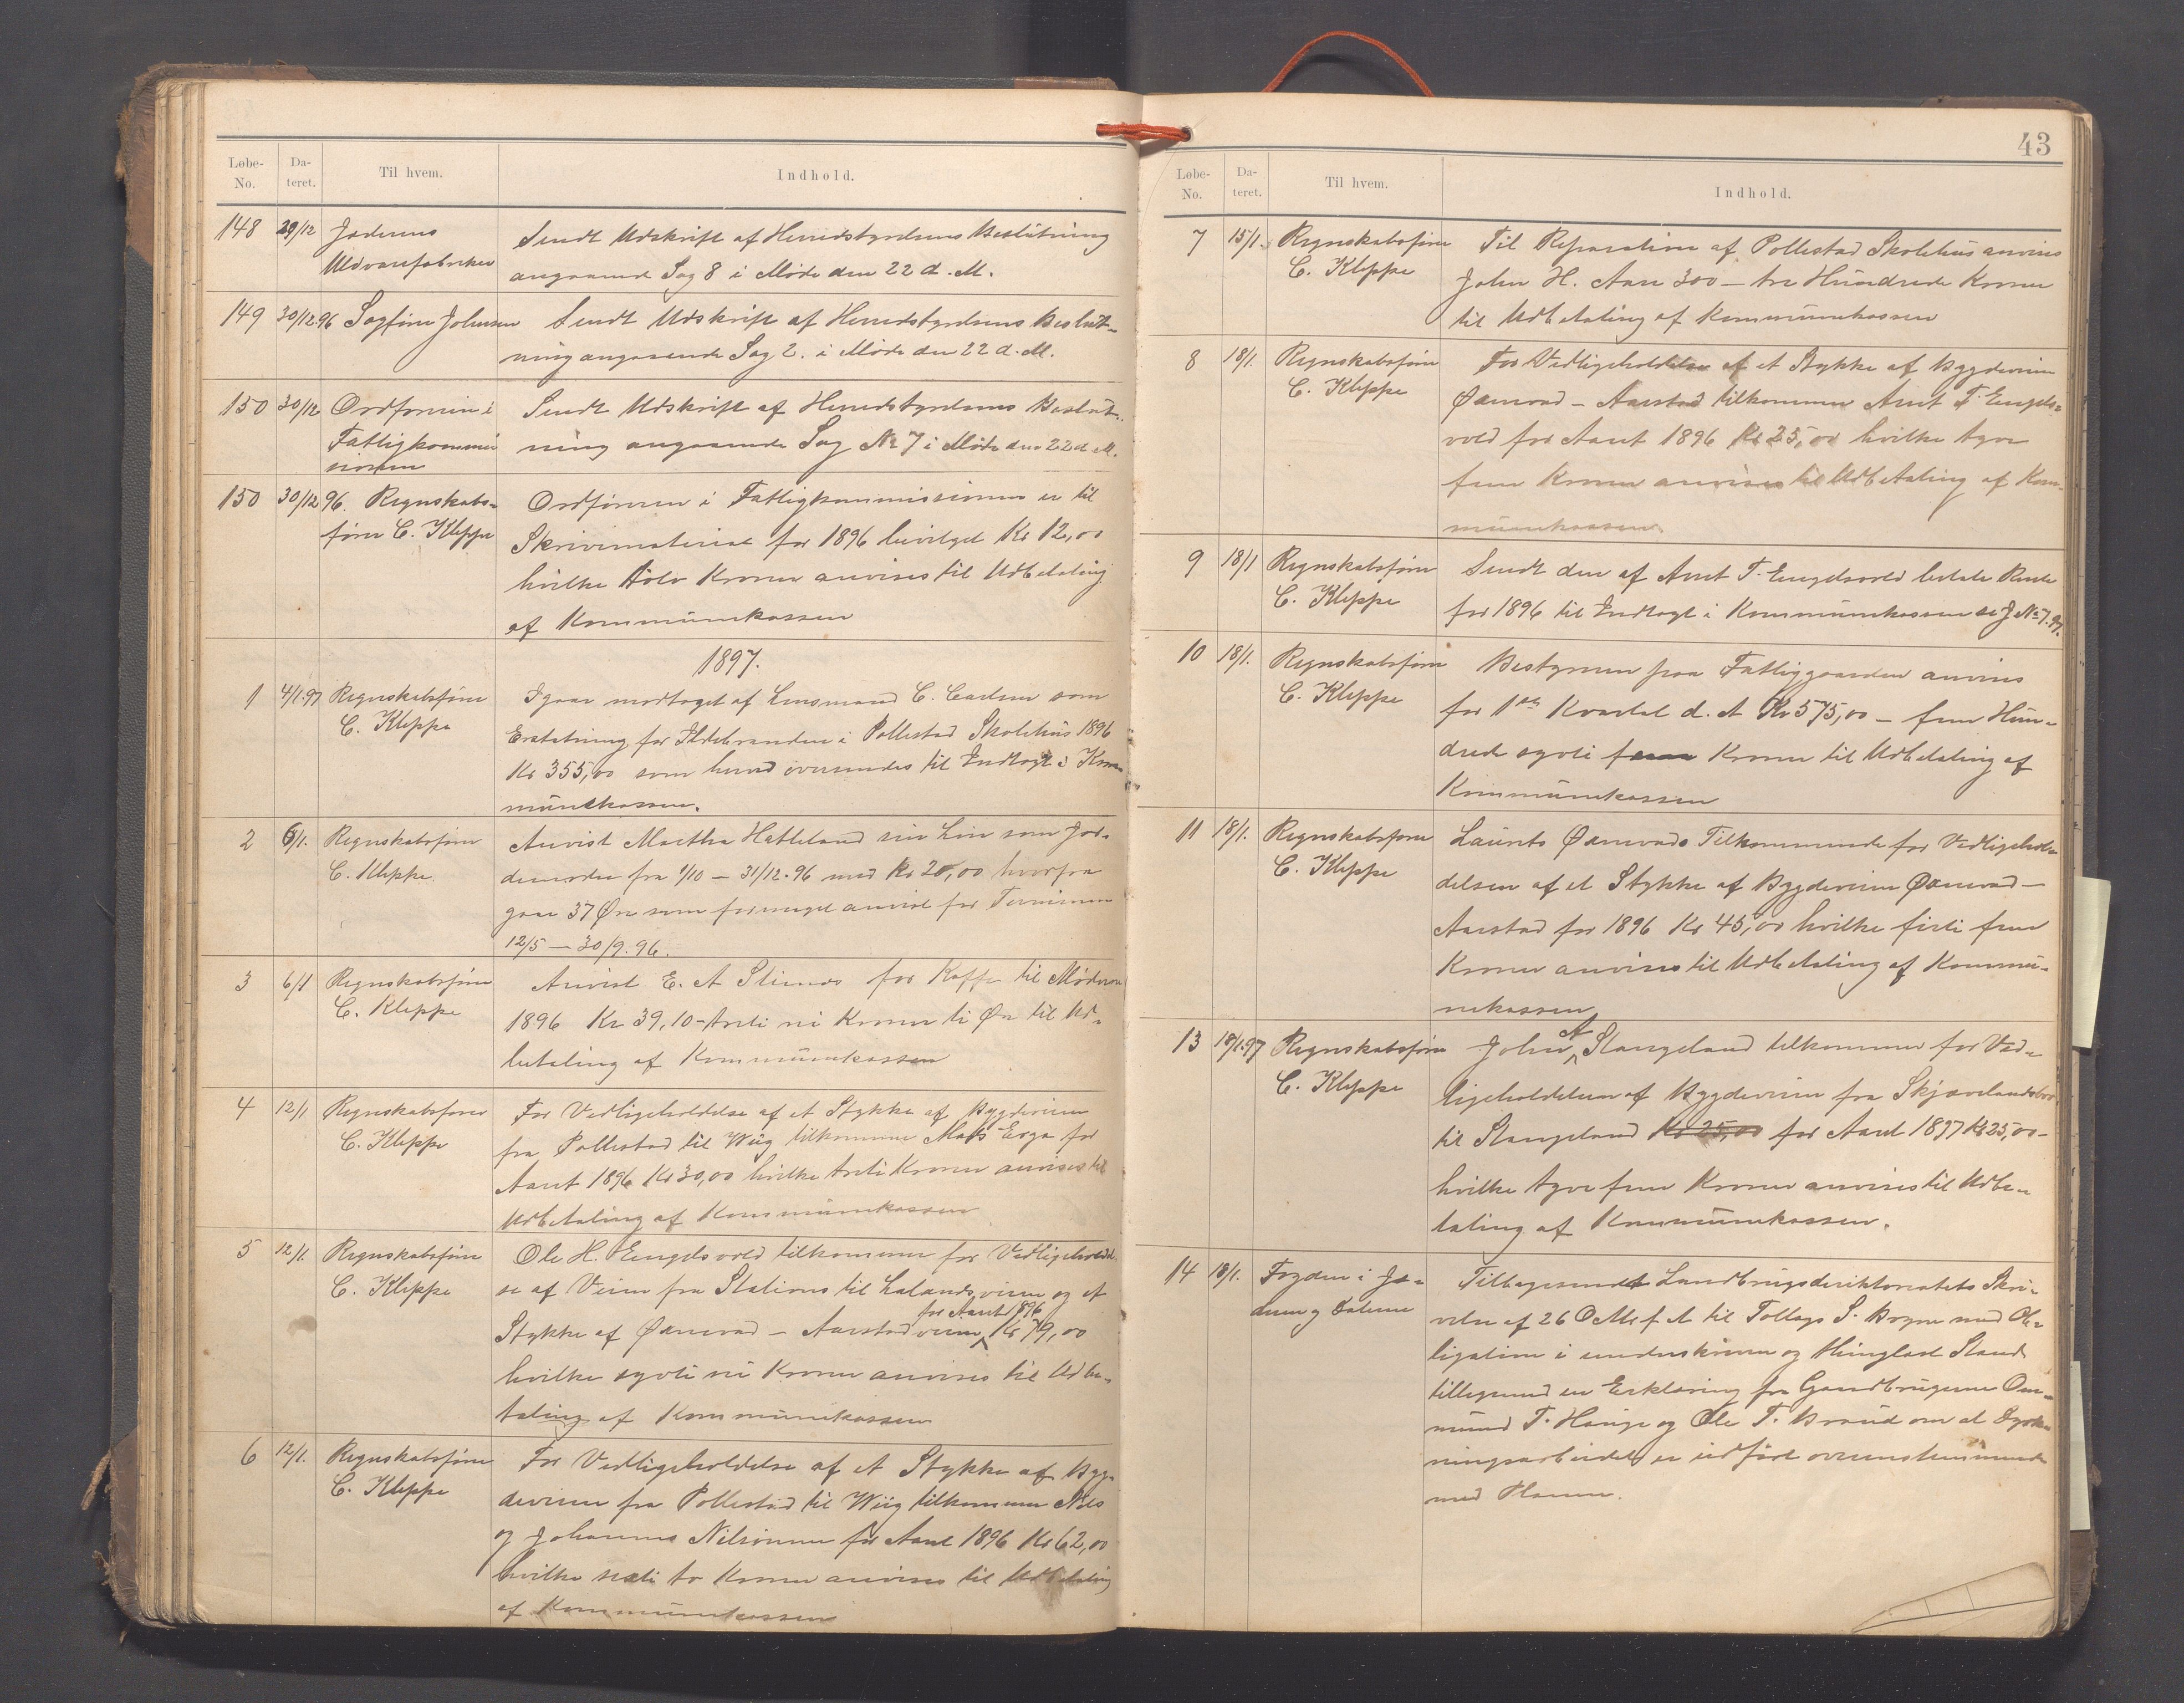 Løbe-No. Da-teret. Til hvem. Indhold.
148 29/12 Jæderens Sendt Udskrift af Herredstyrelsens Beslutning
Uldvarefabriker angaaende Sag 8 i Møde den 22 d. M.
149 30/12 96 Sagfører Johnsen Sendt Udskrift af Herredstyrelsens Beslut-
ning angaaende Sag 2. i Møde den 22 d. M.
150 30/12 Ordføreren i Sendt Udskrift af Herredstyrelsens Beslut-
Fattigkommis ning angaaende Sag No 7 i Møde den 22 d. M.
sionen
150 30/12 96. Regnskabs- Ordføreren i Fattigkommissionen er til
fører C. Kleppe Skrivematerial for 1896 bevilget Kr 12,00
hvilke tolv Kroner anvises til Udbetaling
af Kommunekassen
1897.
1 4/1.97 Regnskabsfører Igaar modtaget af Lensmand C. Carlsen som
C. Kleppe Erstatning for Ildebranden i Pollestad Skolehus 1896
Kr 355,00 som herved oversendes til Indtægt i Kom
munekassen.
2 6/1. Regnskabsfører Anvist Martha Hatteland sin Løn som Jor-
C. Kleppe. demoder fra 1/10 – 31/12.96 med Kr 20,00 hvorfra
gaar 37 Øre som formeget anvist for Terminen
12/5 – 30/9.96.
3 6/1 Regnskabsfører Anvist E. A Stimes for Kaffe til Møderne
C. Kleppe 1896 Kr 39,10 – treti ni Kroner ti Øre til Ud-
betaling af Kommunekassen
4 12/1 Regnskabsfører For Vedligeholdelse af et Stykke af Bygdeveien
C. Kleppe fra Pollestad til Wiig tilkommer Mats Erga for
Aaret 1896 Kr 30,00 hvilke treti Kroner anvises til
Udbetaling af Kommunekassen
5 12/1. Regnskabsfører Ole H. Engelsvold tilkommer for Vedligeholdel
C. Kleppe se af Veien fra Stations til Lalandsveien og et
for Aaret 1896
Stykke af Øxnevad – Aarstadveien Kr 79,00
hvilke sytti ni Kroner anvises til Udbe-
taling af Kommunekassen
6 12/1. Regnskabsfører For Vedligeholdelse af et Stykke af Byg-
C. Kleppe deveien fra Pollestad til Wiig tilkommer Nils
og Johannes Nilsønner for Aaret 1896 Kr 62,00
hvilke sexti to Kroner anvises til Udbetaling
af Kommunekassen
43
Løbe-No. Da-teret. Til hvem. Indhold.
7 15/1. Regnskabsfører Til Reparation af Pollestad Skolehus anvises
C. Kleppe John H. Aase 300 – tre Hundrede Kroner
til Udbetaling af Kommunekassen
8 18/1. Regnskabsfører For Vedligeholdelse af et Stykke af Bygdeveien
C. Kleppe Øxnevad – Aarstad tilkommer Arnt T. Engels-
vold for Aaret 1896 Kr 25,00 hvilke tyve
fem Kroner anvises til Udbetaling af Kom-
munekassen.
9 18/1 Regnskabsfører Sendt den af Arnt T. Engelsvold betalte Rente
C. Kleppe for 1896 til Indtægt i Kommunekassen se J No 7.97.
10 18/1. Regnskabsfører Bestyreren paa Fattiggaarden anvises
C. Kleppe for 1ste Kvartal d. A Kr 575,00 – fem Hun-
drede sytti fem Kroner til Udbetaling af
Kommunekassen
11 18/1. Regnskabsfører Laurits Øxnevads Tilkommende for Vedligehol-
C. Kleppe delsen af et Stykke af Bygdeveien Øxnevad –
Aarstad for 1896 Kr 45,00 hvilke firti fem
Kroner anvises til Udbetaling af Kommu-
nekassen
13 18/1.97 Regnskabsfører John A Stangeland tilkommer for Ved-
C. Kleppe ligeholdelsen af Bygdeveien fra Skjævelandsbro
til Stangeland Kr 25,00 for Aaret 1897 Kr 25,00 –
hvilke tyve fem Kroner anvises til Udbe-
taling af Kommunekassen.
14 18/1. Fogden i Jæ- Tilbagesendt Landbrugsdirektoratets Skri-
deren og Dalerne velse af 26 O M. f. A til Tollags S. Bryne med Ob-
ligation i underskreven og thinglæst Stand
tilligemed en Erklæring fra Gaardbrugerne Om-
mund T. Hauge og Ole T. Braud om at Dyrk-
ningsarbeidet er udført overensstemmende
med Planen.